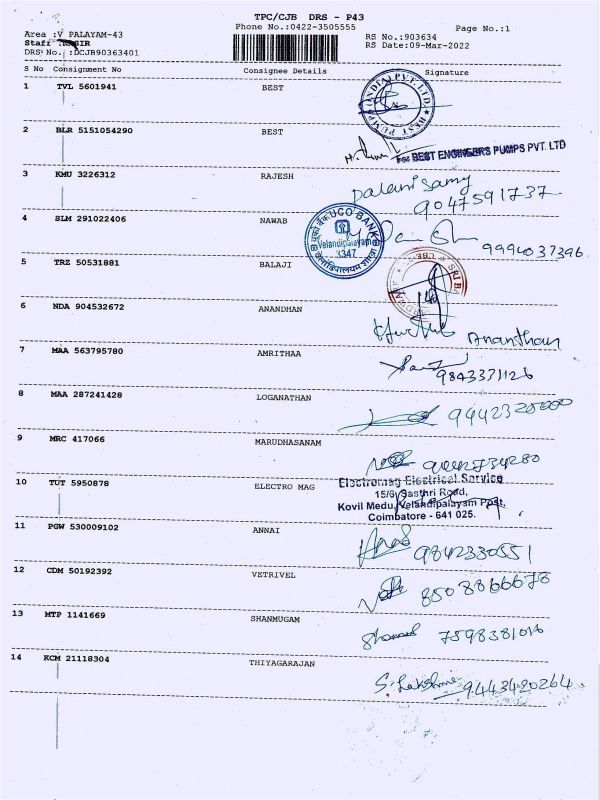 TPC/CJB DRS - P43
Phone No.:0422-3505555
Page No.:1
Area :V PALAYAM-43
RS No.:903634
Staff :
RS Date:09-Mar-2022
DRS No. :DCJB90363401
S No Consignment No Consignee Details Signature
1 TVL 5601941 BEST
2 BLR 5151054290 BEST
For BEST ENGINEERS PUMPS PVT. LTD
3 KMU 3226312 RAJESH
Palanisamy
9047591737
UCO BANK
Velandipalayam
3347
4 SLM 291022406 NAWAB
9994037396
5 TRZ 50531881 BALAJI
6 NDA 904532672 ANANDHAN
Ananthan
7 MAA 563795780 AMRITHAA
9843371126
8 MAA 287241428 LOGANATHAN
9 MRC 417066 MARUDHASANAM
10 TUT 5950878 ELECTRO MAG
Electromag Electrical Service
15/6, Sasthri Road,
Kovil Medu, Velandipalayam Post,
Coimbatore - 641 025.
11 PGW 530009102 ANNAI
9842330551
12 CDM 50192392 VETRIVEL
8508866678
13 MTP 1141669 SHANMUGAM
7598381016
14 KCM 21118304 THIYAGARAJAN
S. Lakshmi 9443420264